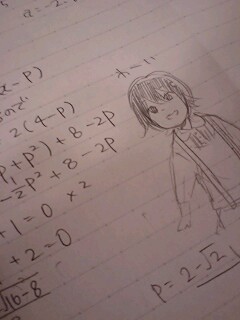 a = -2.
x - P)
ので
わーい
2(4-P)
P₁+P²)+8-2P
-½P²+8-2P
+1=0 ×2
+2=0
√16-8
P=2-√2